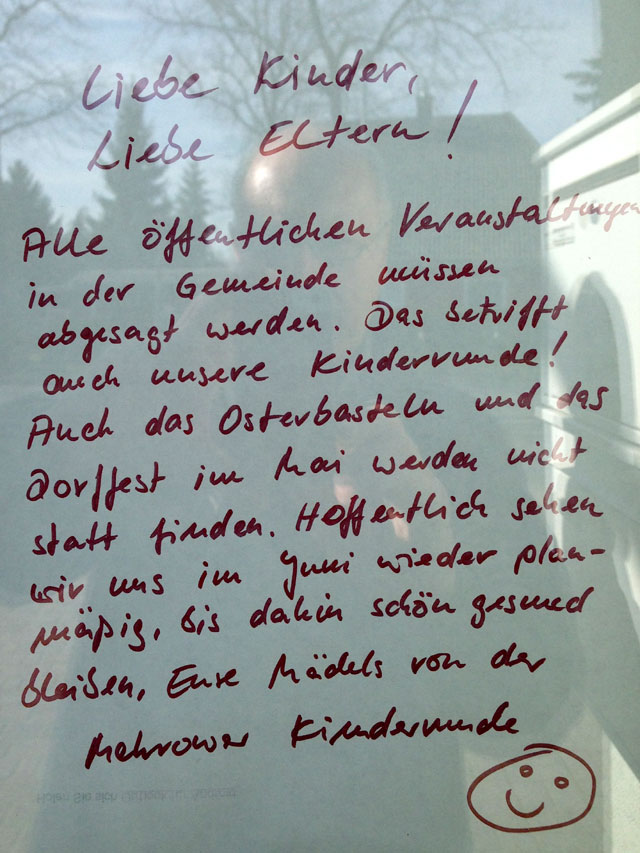 Liebe Kinder,
Liebe Eltern!
Alle öffentlichen Veranstaltungen
in der Gemeinde müssen
abgesagt werden. Das betrifft
auch unsere Kinderrunde!
Auch das Osterbasteln und das
Dorffest im Mai werden nicht
statt finden. Hoffentlich sehen
wir uns im Juni wieder plan-
mäßig, bis dahin schön gesund
bleiben, Eure Mädels von der
Mehrower Kinderrunde